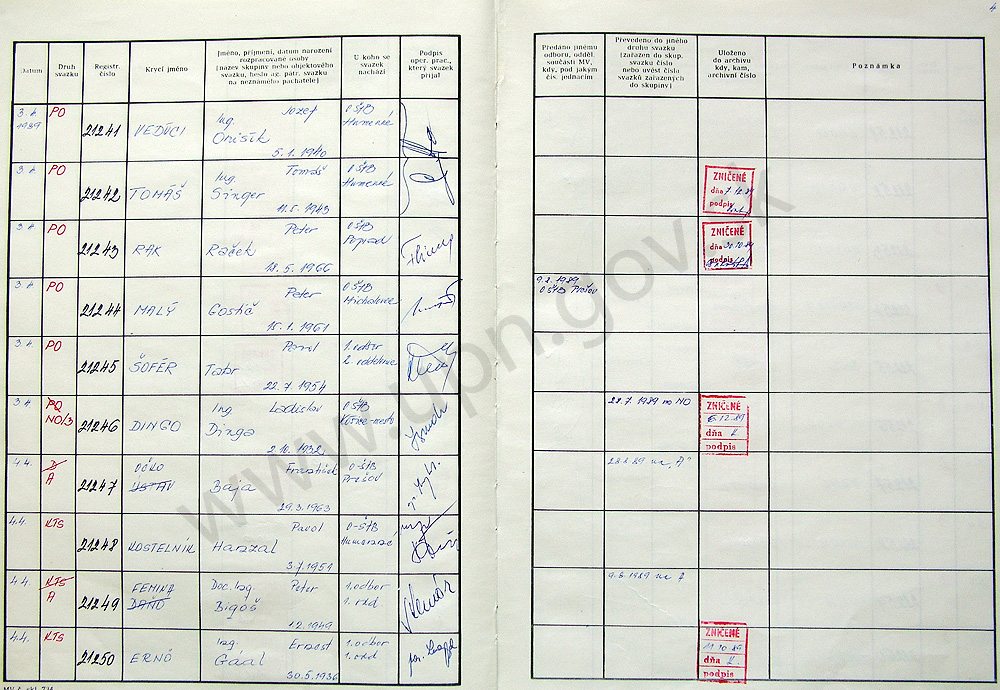 4
Datum
Druh
svazku
Registr.
číslo
Krycí jméno
Jméno, příjmení, datum narození
rozpracované osoby
(název skupiny nebo objektového
svazku, heslo ag. pátr. svazku
na neznámého pachatele)
U koho se
svazek
nachází
Podpis
oper. prac.,
který svazek
přijal
Předáno jinému
odboru, odděl.
součásti MV,
kdy, pod jakým
čís. jednacím
Převedeno do jiného
druhu svazku
(zařazen do skup.
svazku číslo
nebo uvést čísla
svazků zařazených
do skupiny)
Uloženo
do archivu
kdy, kam,
archivní číslo
Poznámka
3.4 PO Jozef O ŠtB
1989 Ing. Humenné
21241 VEDÚCI Onisík
5.1.1940
3.4 PO Tomáš O ŠtB
Ing. Humenné
21242 TOMÁŠ Singer
11.5.1943
ZNIČENÉ
dňa 7.12.89
podpis
3.4 PO Peter O ŠtB
Poprad
21243 RAK Raček
18.5.1966
ZNIČENÉ
dňa 30.10.89
podpis
3.4 PO Peter O ŠtB
Michalovce
21244 MALÝ Gostič
15.1.1961
9.2.1989
O ŠtB Prešov
3.4 PO Pavol 1. odbor
2. oddelenie
21245 ŠOFÉR Tatar
22.7.1954
3.4 PO Ing Ladislav O ŠtB
NO/3 Košice-mesto
21246 DINGO Dinga
2.10.1932
28.7.1989 na NO
ZNIČENÉ
6.12.89
dňa
podpis
4.4. D František O-ŠtB
A Prešov
21247 USTAV Baja
29.3.1963
4.4 KTS Pavol O-ŠtB
Humenné
21248 KOSTELNÍK
3.7.1951
4.4 KTS FEMINA Doc. Ing. Peter 1. odbor
A
21249 DAŇO Bigoš
1.2.1949
9.6.1989 na A
4.4. KTS Ing. Ernest 1. odbor
21250 ERNÖ Gáal
30.5.1936
ZNIČENÉ
11.10.89
dňa
podpis
www.upn.gov.sk